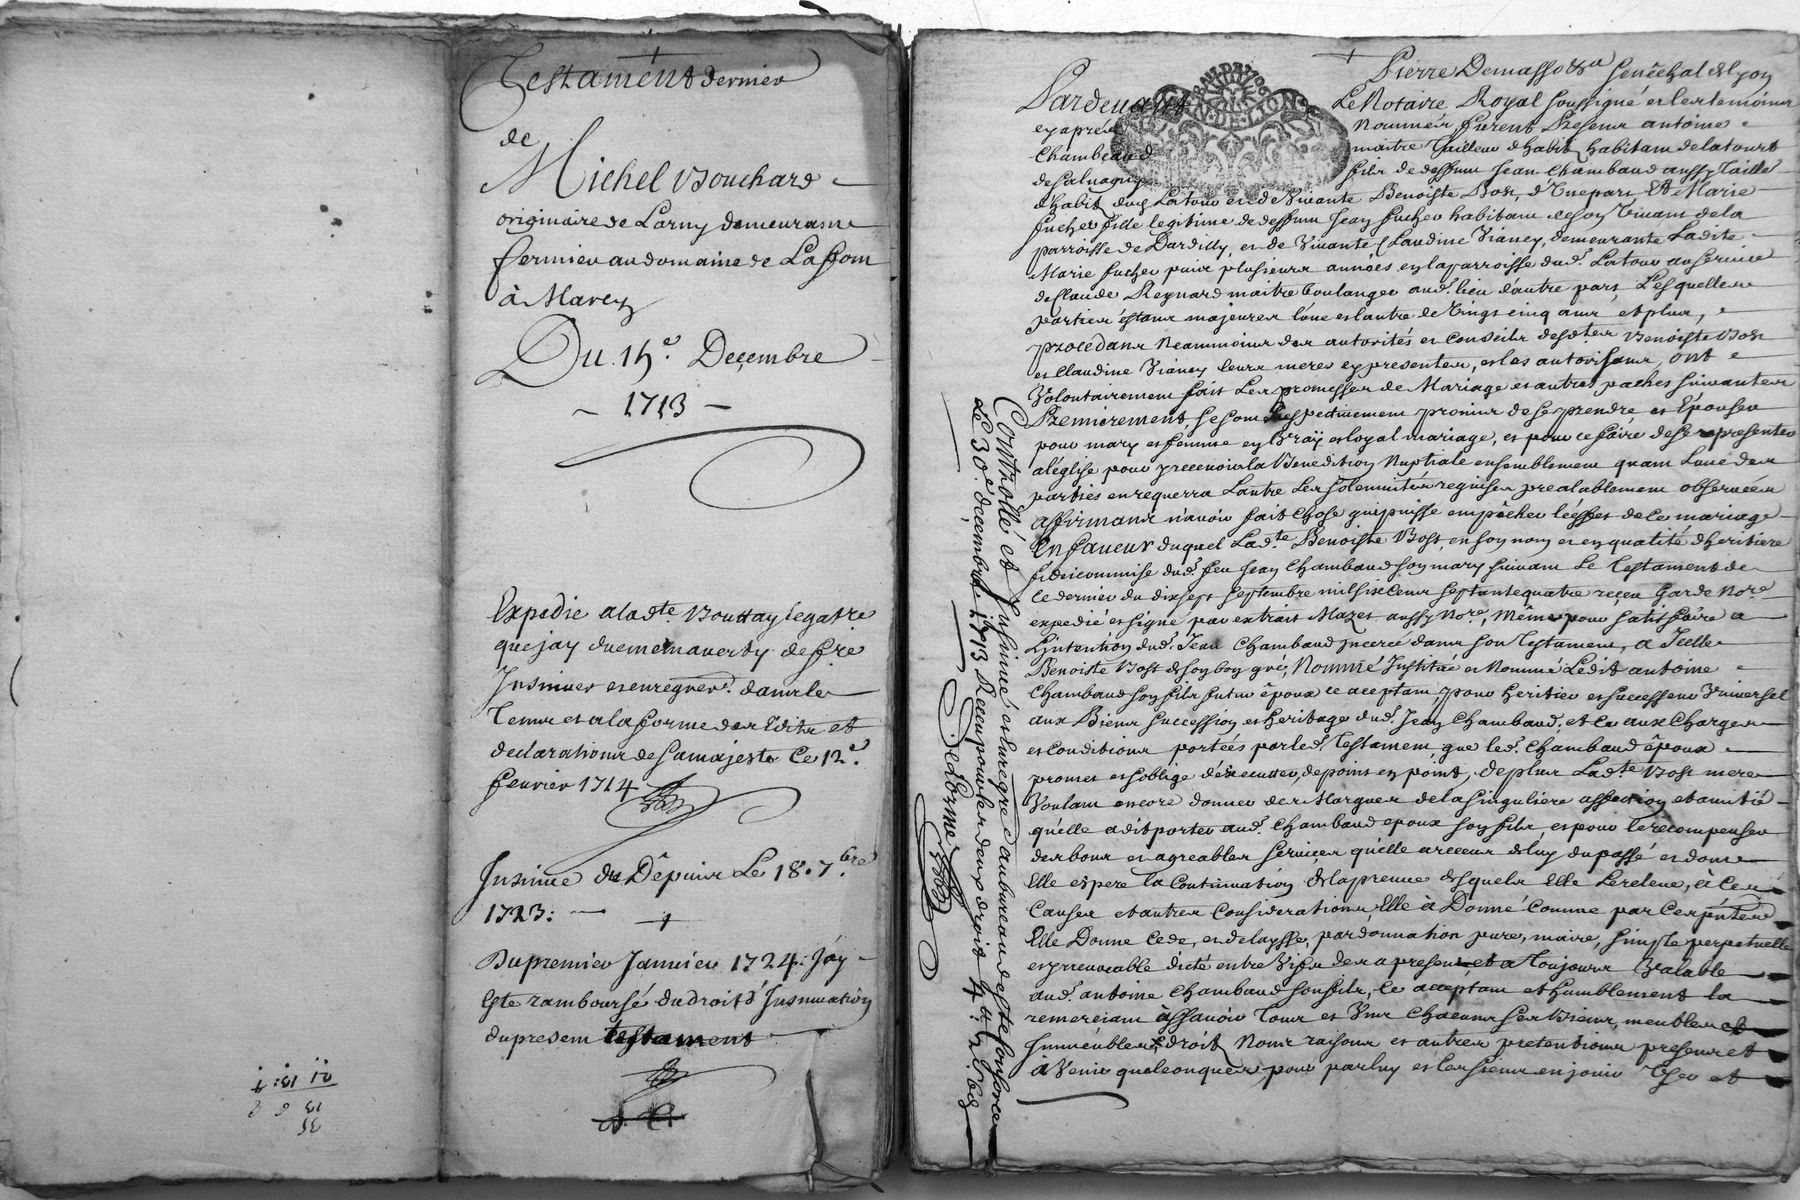 Testament dernier
de
Michel Bouchard
originaire de Larny demeurant
fermier au domaine de La font
à Marcy
Du 15e. Decembre
1713
Expedié a lad.te Bouttay legatre
que jay duement averty de fre
Insinuer et enregrer. dans le
Tems et a la forme des Edits et
declarations de sa majesté Ce 12e.
fevrier 1714
Insinué du Dêpuis Le 18. 7.bre
1723:
Du premier Janvier 1724: Jay
Este ramboursé du droit d'Insinuation
du present testament
GEN. DE LION
Pierre Demasso &a Senêchal de Lyon
Pardevant Le Notaire Royal soussigné et les temoins
cy aprés Nommés furent Presens antoine
Chambaud maitre Tailleur d'habits habitant de la tour
de Salvagny fils de deffunt Jean Chambaud aussy Taille
d'habits dud. Latour et de Vivante Benoiste Bost, d'Une part Et Marie
fucher fille legitime de deffunt Jean fucher habitant de son vivant de la
parroisse de Dardilly, et de Vivante Claudine Vianey, demeurante Ladite
Marie fucher puis plusieurs années en la parroisse dud. Latour au service
de Claude Reynard maitre boulanger aud. lieu d'autre part, Lesquelles
parties êstans majeures l'une et l'autre de Vingt cinq ans et plus,
procedans Neammoins des autorités et Conseils desd.tes Benoiste Bost
et Claudine Vianey leurs meres cy presentes, et les autorisans, ont
Volontairement fait Les promesses de Mariage et autres paches suivantes
Premierement, se sont Respectivement promis de se prendre et Epouser
pour mary et femme en Vray et loyal mariage, et pour ce faire de se representer
a l'église pour y recevoir la Benediction Nuptiale ensemblement quant L'une des
parties en requerra L'autre Les solemnités requises prealablement observées
affirmans n'avoir fait chose que puisse empêcher l'effet de ce mariage
En faveur duquel Lad.te Benoiste Bost, en son nom et en qualité d'heritiere
fideicommise dud. feu Jean Chambaud son mary suivant Le Testament de
Ce dernier du dix sept septembre mil six cens septante quatre reçeu Garde No.re
expedié et signé par extrait Mazet aussy No.re, Même pour satisfaire a
L'intention dud. Jean Chambaud Incerée dans son Testament, a Icelle
Benoiste Bost de son bon gré, Nommé Institué et Nommé Ledit antoine
Chambaud son fils futur êpoux ce aceptant, pour heritier et successeur Universel
aux Biens succession et heritage dud. Jean Chambaud, et Ce aux Charges
et Conditions portées par led. Testament que led. Chambaud êpoux
promet et s'oblige d'éxecutter, de point en point, de plus Lad.te Bost mere
Voulant encore donner des Marques de la singuliere affection et amitié
qu'elle a dit porter aud. Chambaud epoux son fils, et pour le recompenser
des bons et agreables services qu'elle a receus de luy du passé et dont
Elle espere la Continuation de la preuve desquels Elle Le releve, à Ces
Causes et autres Considerations, Elle à Donné Comme par Ces presentes
Elle Donne Cede, et delaysse, par donnation pure, maire, simple perpetuelle
et yrrevocable ditte entre Vifs des a present et a Toujours Valable
aud. antoine Chambaud son fils, Ce acceptant et humblement la
remerciant assavoir Tous et Uns Chacuns ses Biens, meubles et
Immeubles, droits Noms raisons et autres pretentions presens et
à Venir quelconques, pour par luy et Les siens en jouir User et
Conthrollé et Insinué et Enregré au bureau de
Le 30e decembre 1713 Receu pour les deux droits
Delorme